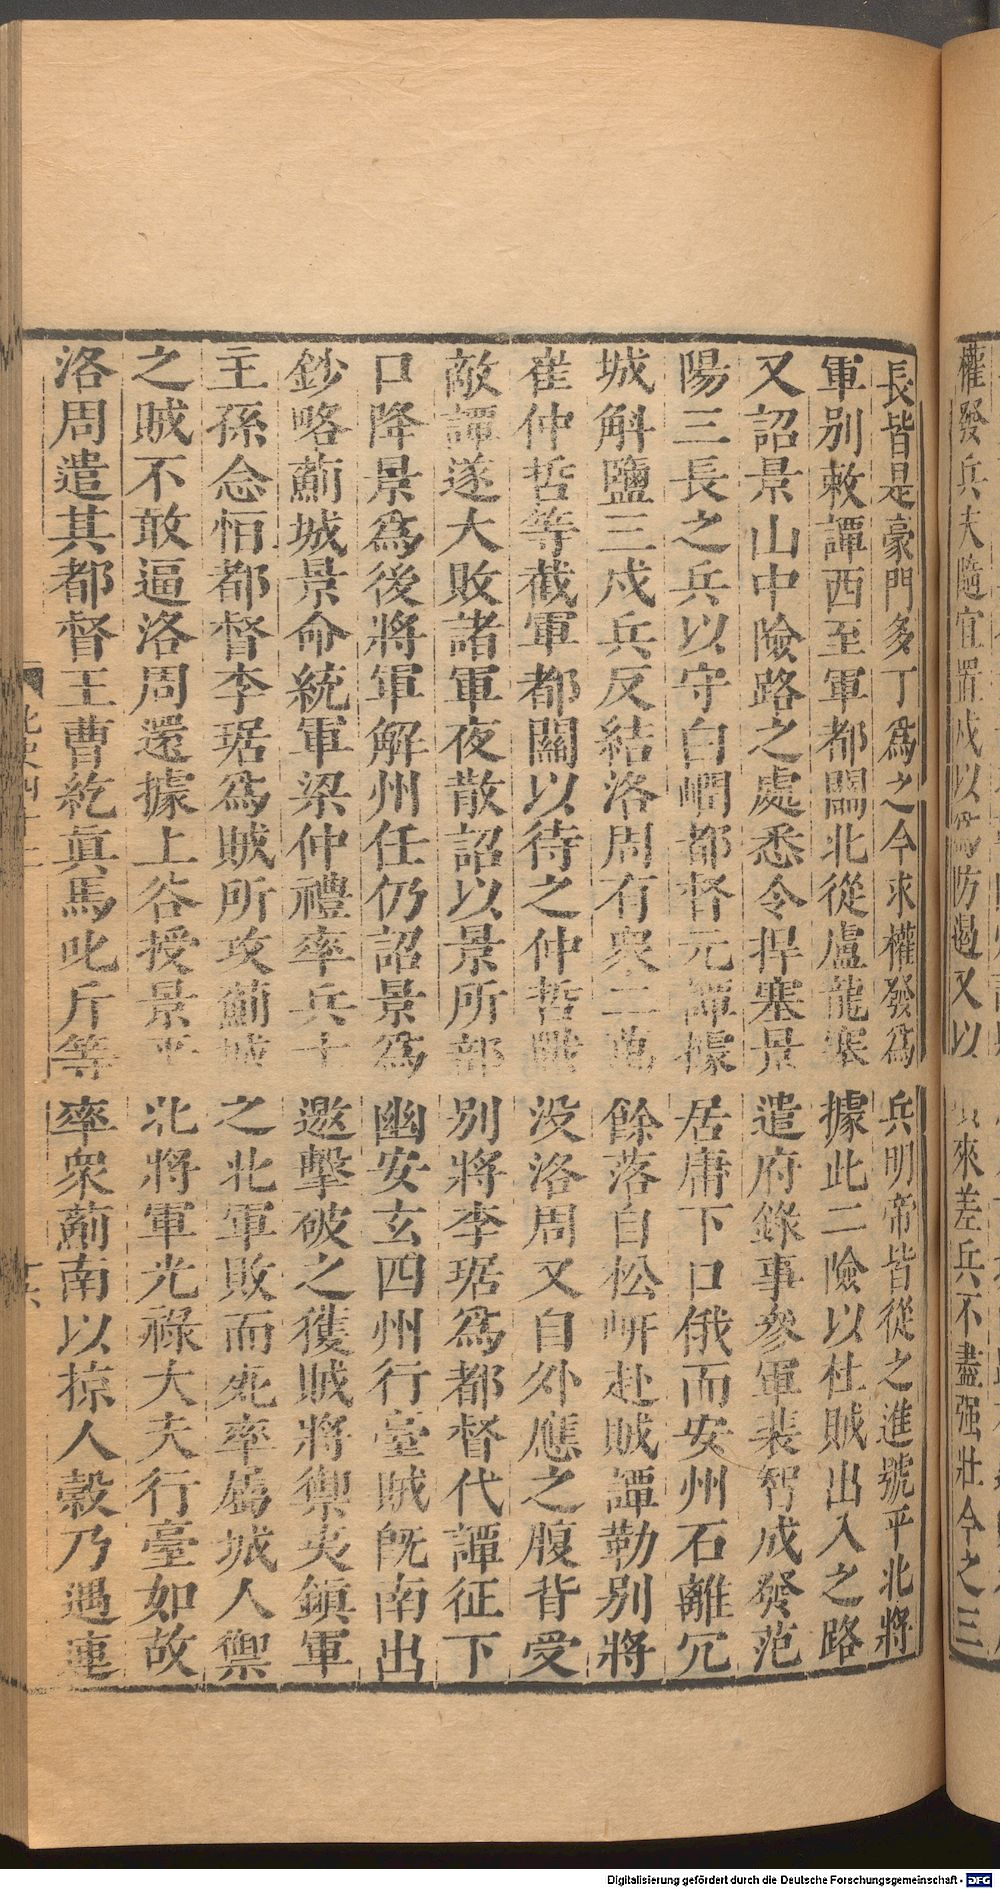 權發兵夫隨宜置戍以爲防遏又以 來差兵不盡强壯今之三
長皆是豪門多丁爲之今求權發爲兵明帝皆從之進號平北將
軍别敕譚西至軍都關北從盧龍塞據此二險以杜賊出入之路
又詔景山中險路之處悉令捍塞景遣府錄事參軍裴智成發范
陽三長之兵以守白㵎都督元譚據居庸下口俄而安州石離冗
城斛鹽三戍兵反結洛周有衆二萬餘落自松岍赴賊譚勒别將
崔仲哲等截軍都關以待之仲哲戰没洛周又自外應之腹背受
敵譚遂大敗諸軍夜散詔以景所部别將李琚爲都督代譚征下
口降景爲後將軍解州任仍詔景爲幽安玄四州行臺賊旣南出
鈔略薊城景命統軍梁仲禮率兵士邀擊破之獲賊將禦夷鎭軍
主孫念恒都督李琚爲賊所攻薊城之北軍敗而死率屬城人禦
之賊不敢逼洛周還據上谷授景平北將軍光祿大夫行臺如故
洛周遣其都督王曹紇眞馬叱斤等率衆薊南以掠人穀乃遇連
Digitalisierung gefördert durch die Deutsche Forschungsgemeinschaft - DFG